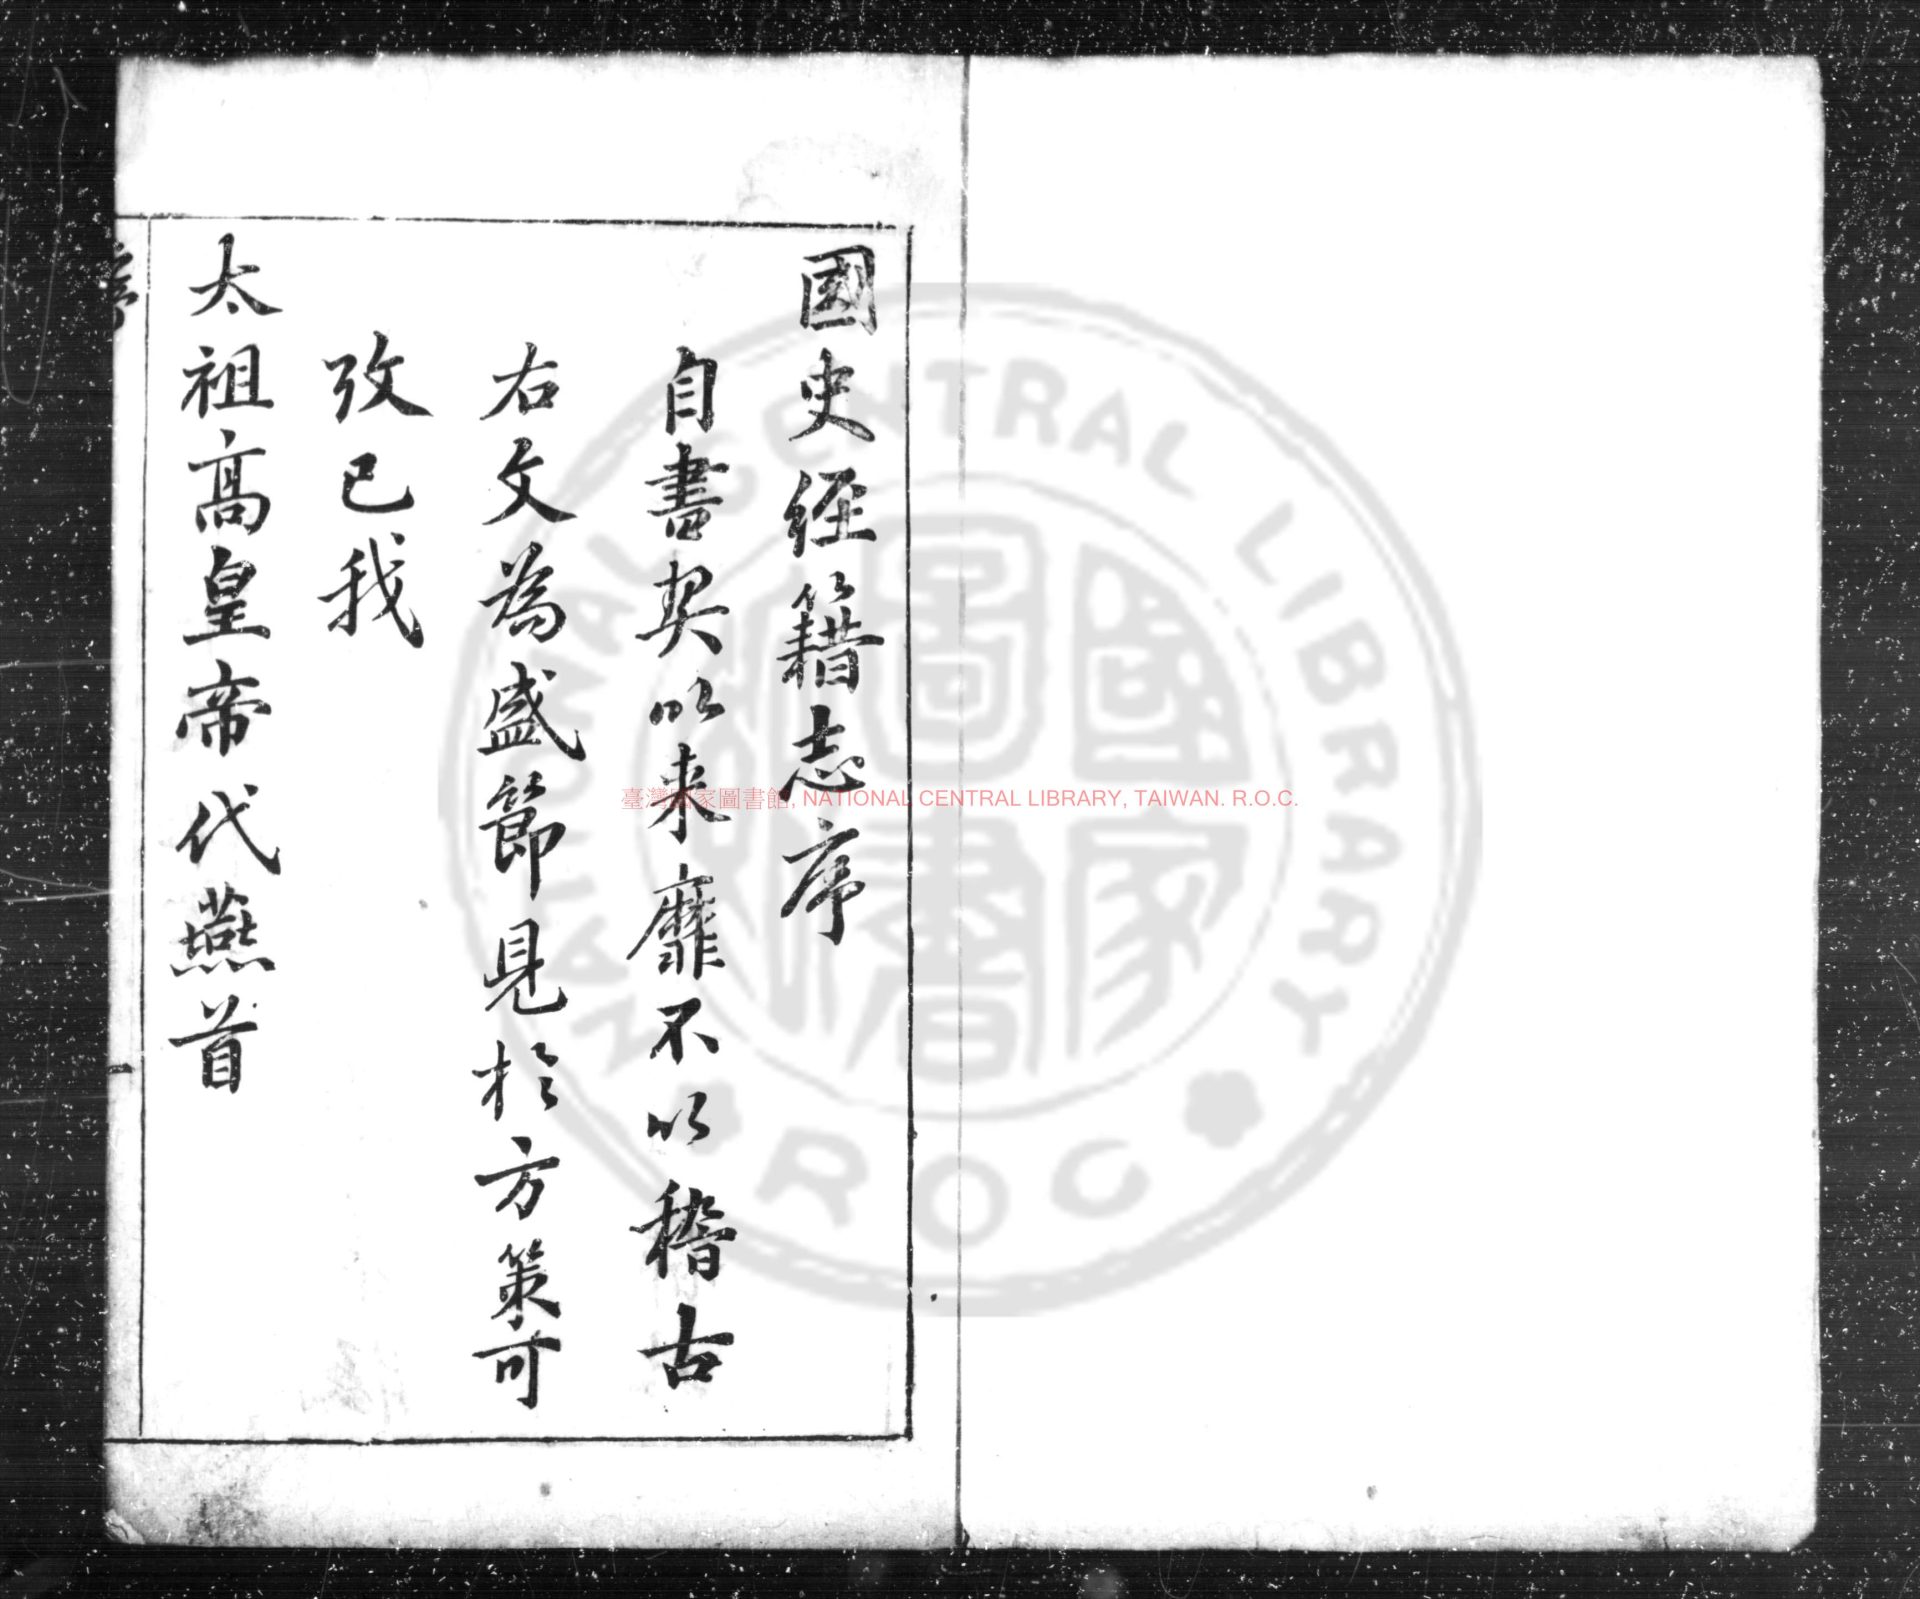 國史經籍志序
自書契以來靡不以稽古
右文為盛節見於方策可
攷已我
太祖高皇帝代燕首
序
一
臺灣國家圖書館, NATIONAL CENTRAL LIBRARY, TAIWAN. R.O.C.
NATIONAL CENTRAL LIBRARY
ROC
國家圖書